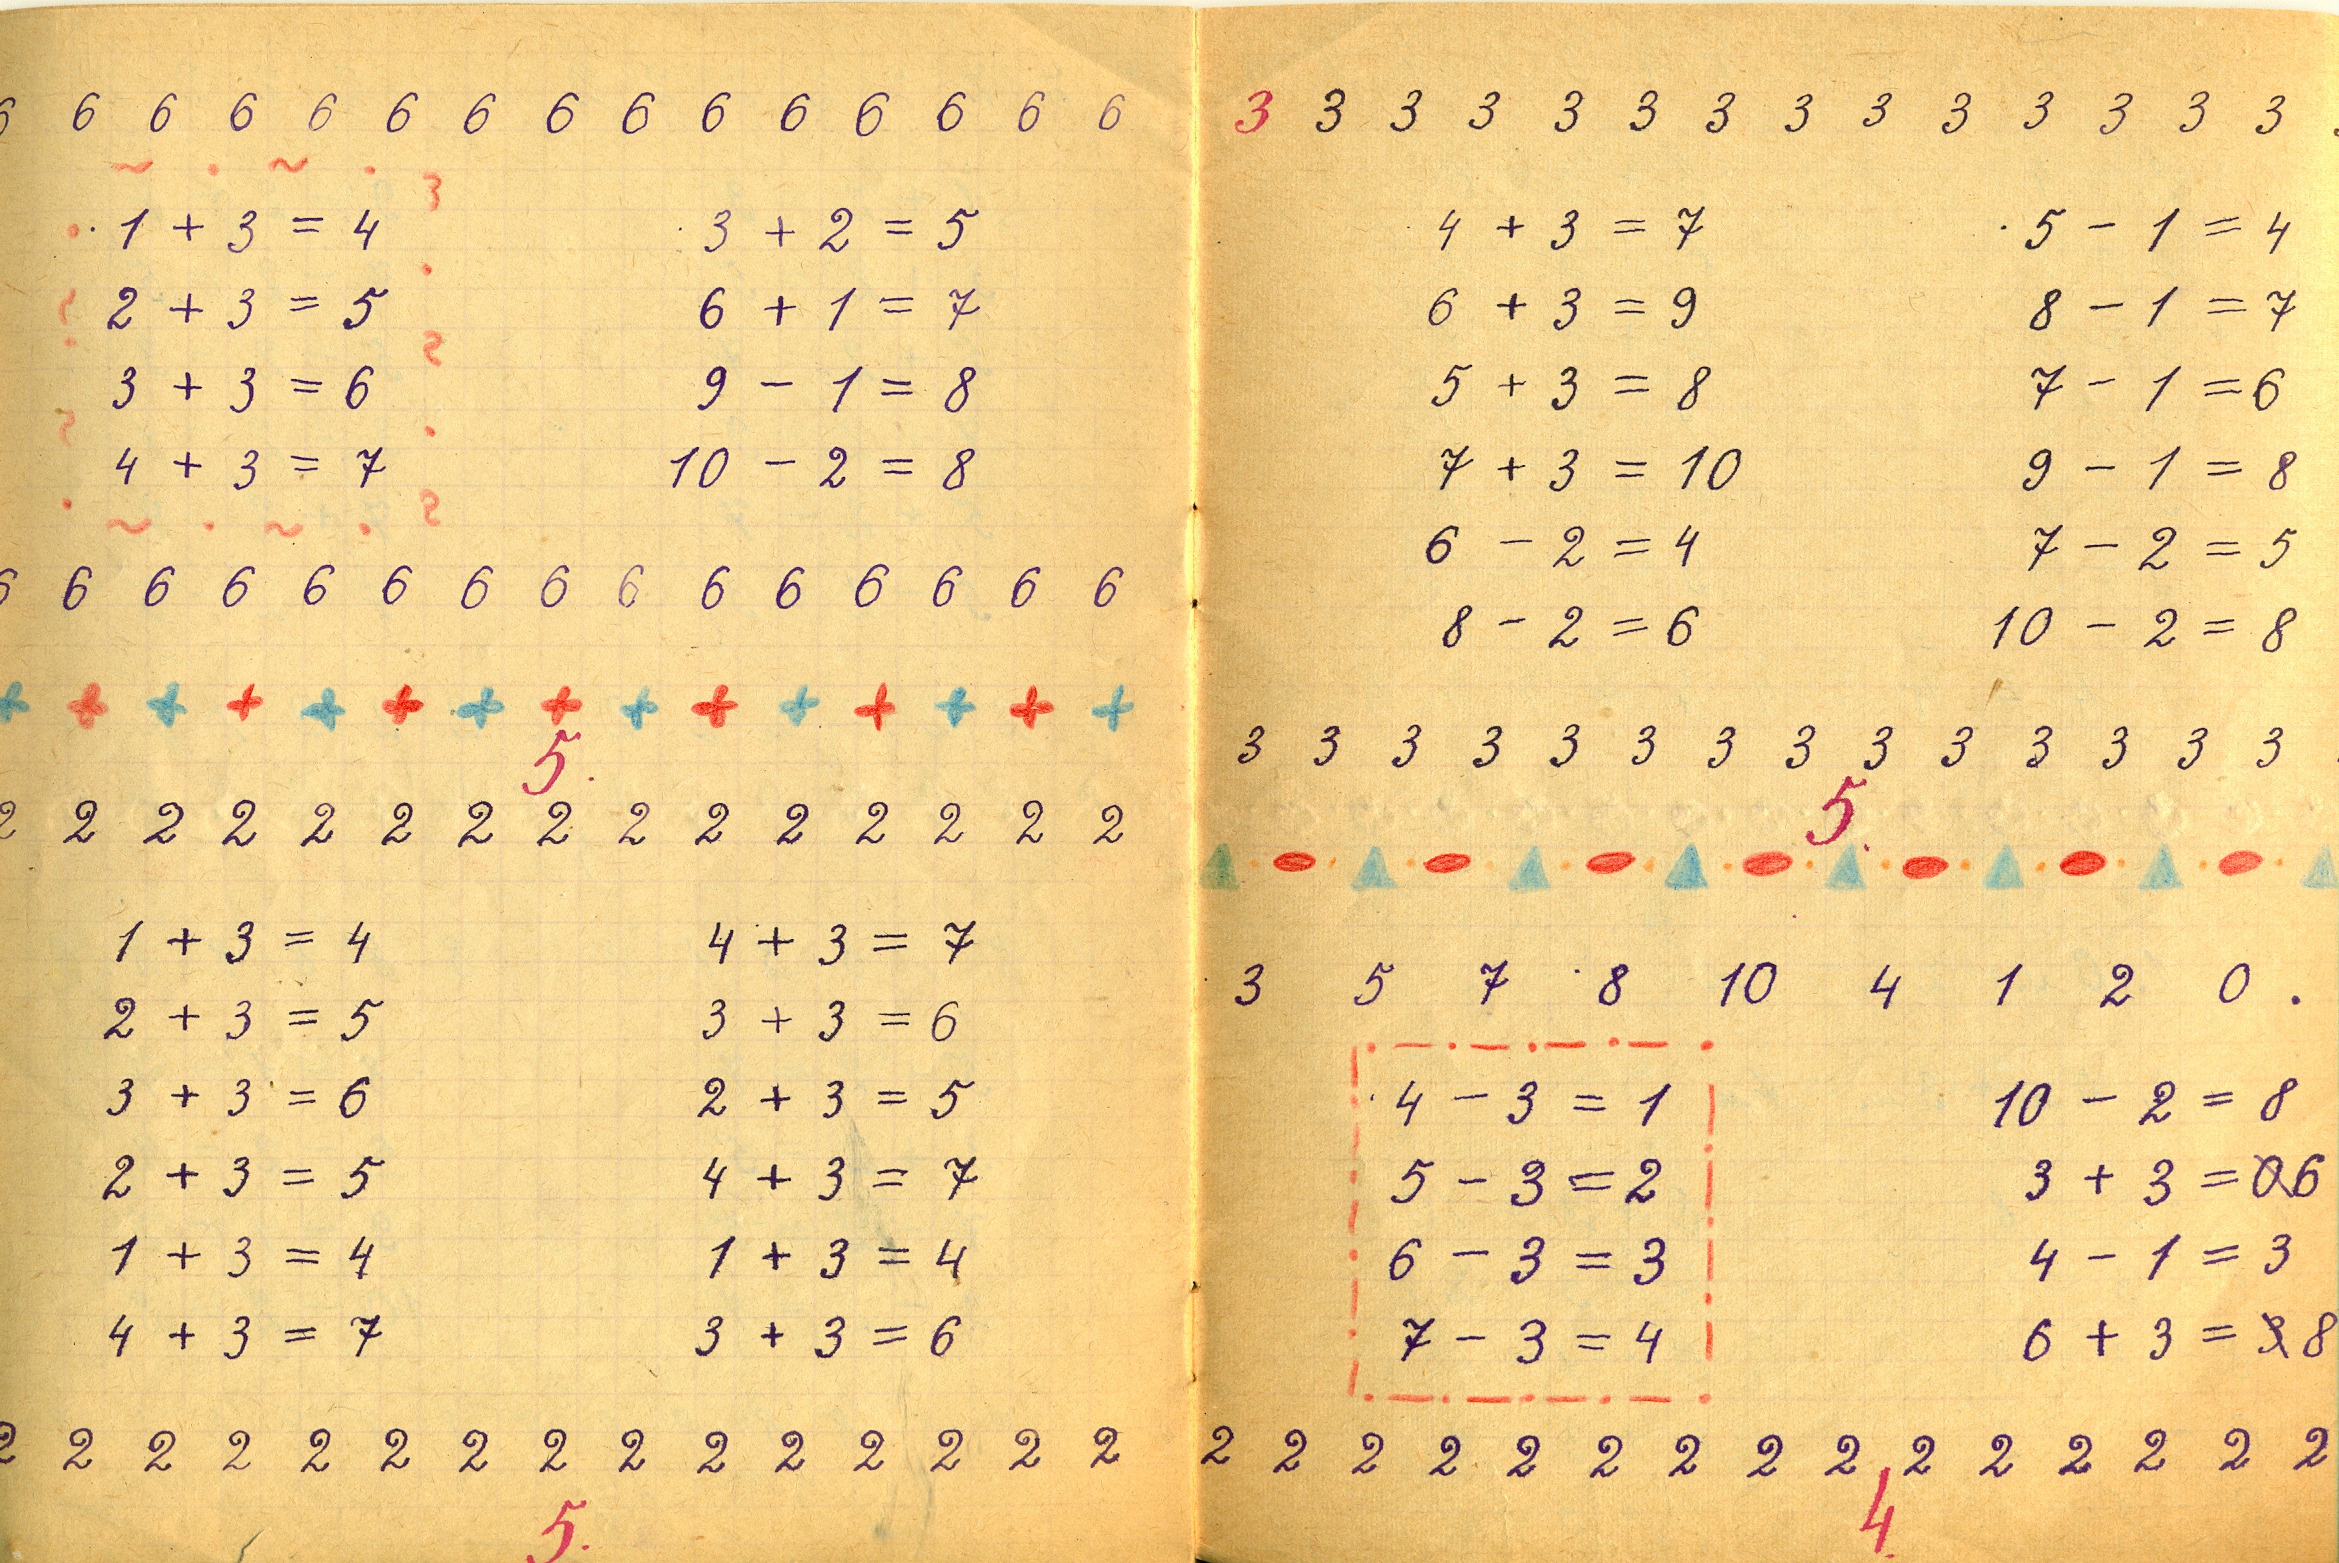 6 6 6 6 6 6 6 6 6 6 6 6 6 6 6
1 + 3 = 4 3 + 2 = 5
2 + 3 = 5 6 + 1 = 7
3 + 3 = 6 9 - 1 = 8
4 + 3 = 7 10 - 2 = 8
6 6 6 6 6 6 6 6 6 6 6 6 6 6 6
5.
2 2 2 2 2 2 2 2 2 2 2 2 2 2 2
1 + 3 = 4 4 + 3 = 7
2 + 3 = 5 3 + 3 = 6
3 + 3 = 6 2 + 3 = 5
2 + 3 = 5 4 + 3 = 7
1 + 3 = 4 1 + 3 = 4
4 + 3 = 7 3 + 3 = 6
2 2 2 2 2 2 2 2 2 2 2 2 2 2 2
5.
3 3 3 3 3 3 3 3 3 3 3 3 3 3
4 + 3 = 7 5 - 1 = 4
6 + 3 = 9 8 - 1 = 7
5 + 3 = 8 7 - 1 = 6
7 + 3 = 10 9 - 1 = 8
6 - 2 = 4 7 - 2 = 5
8 - 2 = 6 10 - 2 = 8
3 3 3 3 3 3 3 3 3 3 3 3 3 3
5.
3 5 7 8 10 4 1 2 0 .
4 - 3 = 1 10 - 2 = 8
5 - 3 = 2 3 + 3 = 0 6
6 - 3 = 3 4 - 1 = 3
7 - 3 = 4 6 + 3 = 8
2 2 2 2 2 2 2 2 2 2 2 2 2 2 2
4.